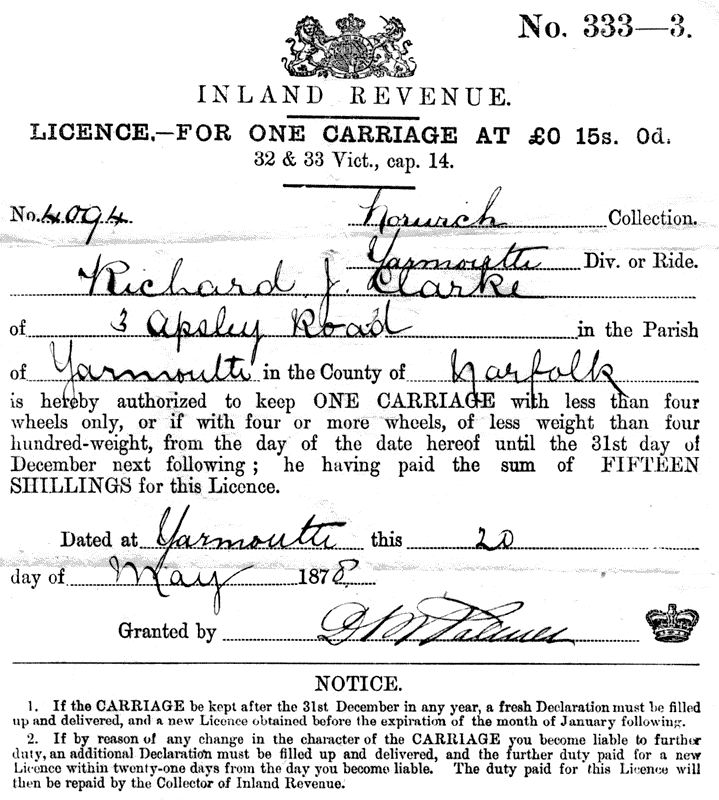 No. 333—3.
INLAND REVENUE.
LICENCE.—FOR ONE CARRIAGE AT £0 15s. 0d.
32 & 33 Vict., cap. 14.
No. 4094 Norwich Collection.
Yarmouth Div. or Ride.
Richard J. Clarke
of 3 Apsley Road in the Parish
of Yarmouth in the County of Norfolk
is hereby authorized to keep ONE CARRIAGE with less than four
wheels only, or if with four or more wheels, of less weight than four
hundred-weight, from the day of the date hereof until the 31st day of
December next following; he having paid the sum of FIFTEEN
SHILLINGS for this Licence.
Dated at Yarmouth this 20
day of May 1878
Granted by
NOTICE.
1. If the CARRIAGE be kept after the 31st December in any year, a fresh Declaration must be filled
up and delivered, and a new Licence obtained before the expiration of the month of January following.
2. If by reason of any change in the character of the CARRIAGE you become liable to further
duty, an additional Declaration must be filled up and delivered, and the further duty paid for a new
Licence within twenty-one days from the day you become liable. The duty paid for this Licence will
then be repaid by the Collector of Inland Revenue.